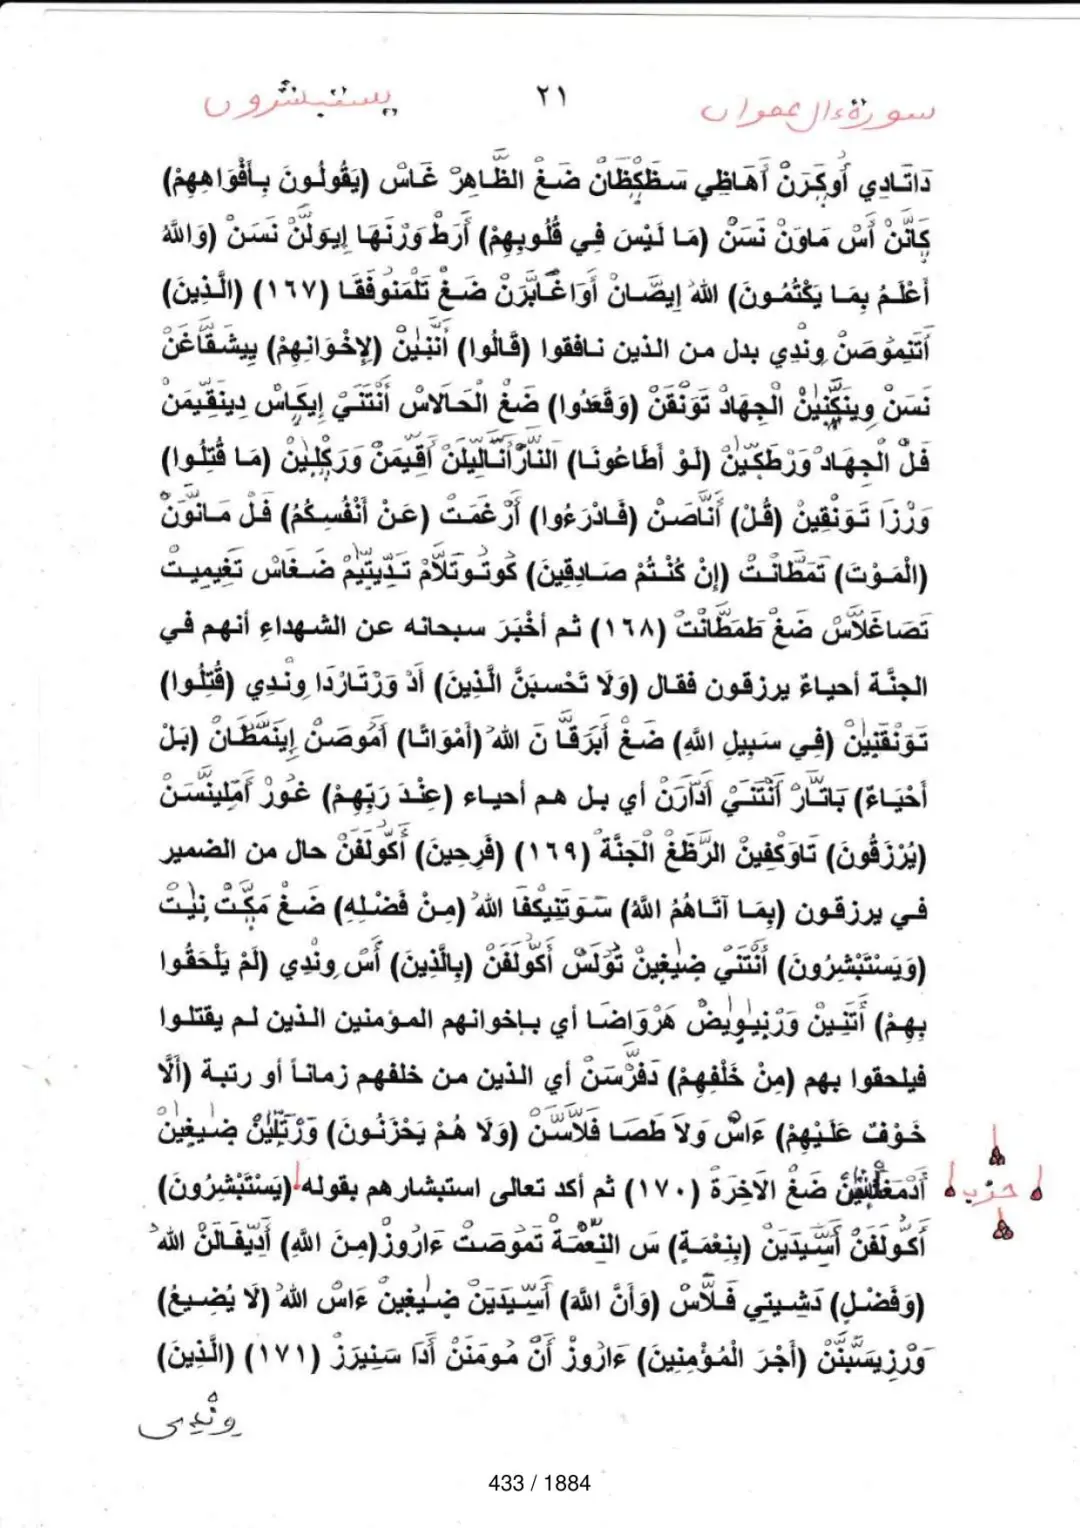 سورة ءال عمران ٢١ يستبشرون
دَاتَادِي أُوكَرَنْ أَهَاظِي سَظَكْظَانْ ضَغْ الظَّاهِرْ غَاسْ (يَقُولُونَ بِأَفْوَاهِهِمْ)
كَانَّنْ أَسْ مَاوَنْ نَسَنْ (مَا لَيْسَ فِي قُلُوبِهِمْ) أَرَطْ وَرْنَهَا إِيوَلَّنْ نَسَنْ (وَاللَّهُ
أَعْلَمُ بِمَا يَكْتُمُونَ) اللهُ إِيصَّانْ أَوَاغَابَّرَنْ ضَغْ تَلْمَنُوفَقَا (١٦٧) (الَّذِينَ)
أَتَنِمُوصَنْ وِنْدِي بدل من الذين نافقوا (قَالُوا) أَنَّنِينْ (لِإِخْوَانِهِمْ) يِيشَقَّاغَنْ
نَسَنْ وِينَكَّنِينْ الْجِهَادْ تَوَنْقَنْ (وَقَعَدُوا) ضَغْ الْحَالَاسْ أَنْتَنَيْ إِيكَاسْ دِينَقِّيمَنْ
فَلْ الْجِهَادْ وَرْطَكِّينْ (لَوْ أَطَاعُونَا) النَّارْأَنَالِيلَنْ أَقِّيمَنْ وَرَكْلِينْ (مَا قُتِلُوا)
وَرْزَا تَوَنْقِينْ (قُلْ) أَنَّاصَنْ (فَادْرَءُوا) أَرْغَمَتْ (عَنْ أَنْفُسِكُمُ) فَلْ مَانَّوَنْ
(الْمَوْتَ) تَمَطَّانْتْ (إِنْ كُنْتُمْ صَادِقِينَ) كُوتُوتَلَّامْ تَدِّيتِّيمْ ضَغَاسْ تَغِيمِيتْ
تَصَاغَلَّاسْ ضَغْ طَمَطَّانْتْ (١٦٨) ثم أَخْبَرَ سبحانه عن الشهداءِ أنهم في
الجنَّة أحياءٌ يرزقون فقال (وَلَا تَحْسِبَنَّ الَّذِينَ) أَدْ وَرْتَارْدَا وِنْدِي (قُتِلُوا)
تَوَنْقَنِينْ (فِي سَبِيلِ اللَّهِ) ضَغْ أَبَرَقَّا نَ اللهْ (أَمْوَاتًا) أَمُوصَنْ إِينَمَّطَّانْ (بَلْ
أَحْيَاءٌ) بَاتَّارْ أَنْتَنَيْ أَدَّارَنْ أي بل هم أحياء (عِنْدَ رَبِّهِمْ) غُورْ أَمَّلِينَسَنْ
(يُرْزَقُونَ) تَاوَكْفِينْ الرَّظَغْ الْجَنَّةْ (١٦٩) (فَرِحِينَ) أَكُولَفَنْ حال من الضمير
في يرزقون (بِمَا آتَاهُمُ اللَّهُ) سَوَتَنِيكْفَا اللهْ (مِنْ فَضْلِهِ) ضَغْ مَكَّتْ نِيتْ
(وَيَسْتَبْشِرُونَ) أَنْتَنَيْ ضِيغِينْ تُوَلَسْ أَكُولَفَنْ (بِالَّذِينَ) أَسْ وِنْدِي (لَمْ يَلْحَقُوا
بِهِمْ) أَتَنِينْ وَرْنِيوِيضْ هَرْوَاضَا أي بإخوانهم المؤمنين الذين لم يقتلوا
فيلحقوا بهم (مِنْ خَلْفِهِمْ) دَفَرْسَنْ أي الذين من خلفهم زماناً أو رتبة (أَلَّا
خَوْفٌ عَلَيْهِمْ) ءَاسْ وَلَا طَصَا فَلَّاسَنْ (وَلَا هُمْ يَحْزَنُونَ) وَرْتَلِّينْ ضِيغِينْ
ضَغْ الْآخِرَةْ (١٧٠) ثم أكد تعالى استبشارهم بقوله (يَسْتَبْشِرُونَ) حزب
أَكُولَفَنْ أَسِّيدَيَنْ (بِنِعْمَةٍ) سَ النِّعْمَةْ تَمُوصَتْ ءَارُوزْ(مِنَ اللَّهِ) أَدِّيفَالَنْ اللهْ
(وَفَضْلٍ) دَشِيتِي فَلَّاسْ (وَأَنَّ اللَّهَ) أَسِّيدَيَنْ ضِيغِينْ ءَاسْ اللهْ (لَا يُضِيعُ)
وَرْزِيسَّبَنَّنْ (أَجْرَ الْمُؤْمِنِينَ) ءَارُوزْ أَنْ مُومَنَنْ أَدَا سَنِيرَزْ (١٧١) (الَّذِينَ)
وندي
433 / 1884